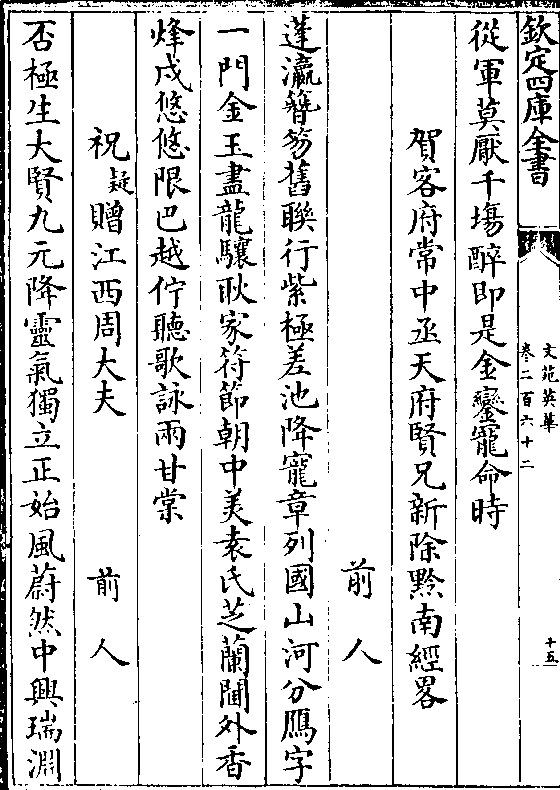 欽定四庫全書
文苑英華
卷二百六十二
十五
從軍莫厭千塲醉即是金鑾寵命時
賀客府常中丞天府賢兄新除黔南經畧
前人
蓬瀛簪笏舊聯行紫極差池降寵章列國山河分鴈字
一門金玉盡龍驤耿家符節朝中美袁氏芝蘭閫外香
烽戍悠悠限巴越佇聽歌詠兩甘棠
祝疑贈江西周大夫
前人
否極生大賢九元降靈氣獨立正始風蔚然中興瑞淵